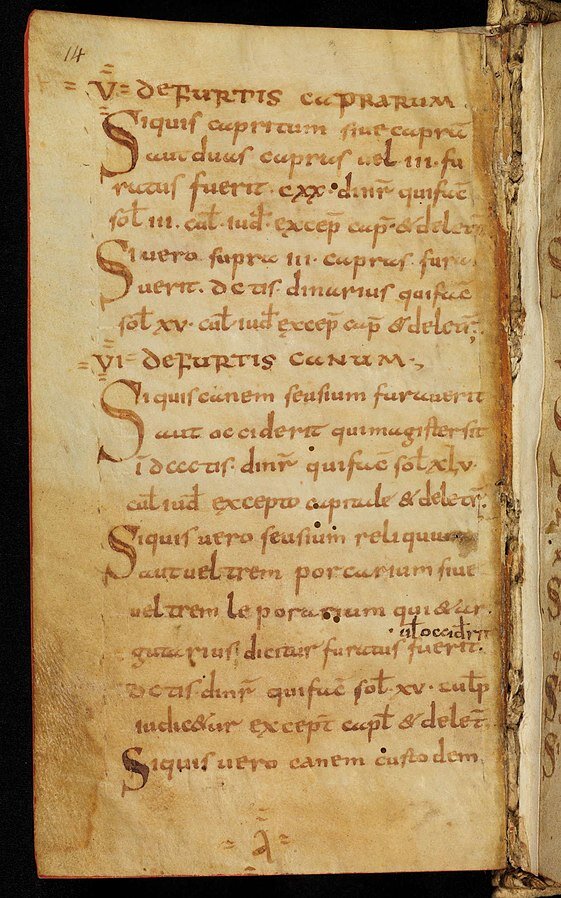 14
V DE FURTIS CAPRARUM
Siquis capritum siue caprā
aut duas capras uel III. fu
ratus fuerit. CXX. dinr̄ qui fac̄
sol̄ III. cul̄. iud̄. excep̄ cap̄. & delet̄
Si uero supra III. capras. fura
uerit. DC tis. dinarius qui fac̄
sol̄ XV. cul̄. iud̄ excep̄ cap̄ & delet̄.
VI DE FURTIS CANUM.
Siquis canem seusium furauerit
aut occiderit qui magister sit
ī DCCC tis. dinr̄ qui fac̄ sol̄ XLV.
cul̄ iud̄ excepto capitale & delet̄.
Siquis uero seusium reliquum
aut ueltrem porcarium siue
ueltrem leporarium qui & ar
ul̄ occiderit
gutarius dicitur furatus fuerit.
DC tis. dinr̄ qui fac̄ sol̄. XV. culp̄
iudic&ur except̄ capt̄ & delet̄.
Siquis uero canem custodem
A